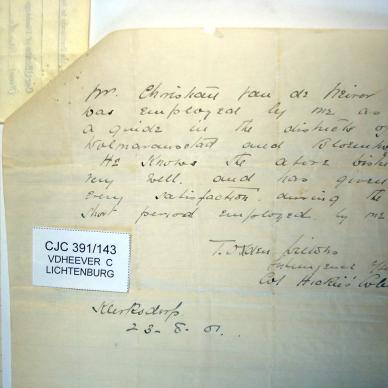 Mr. Christian van de
was employed by me as
a guide in the districts of
Wolmaransstad and
He knows the above
very well. and has given
every satisfaction. during the
short period employed by me
CJC 391/143
VDHEEVER C
LICHTENBURG
Col Hickie's
Klerksdorp
23-8.01.